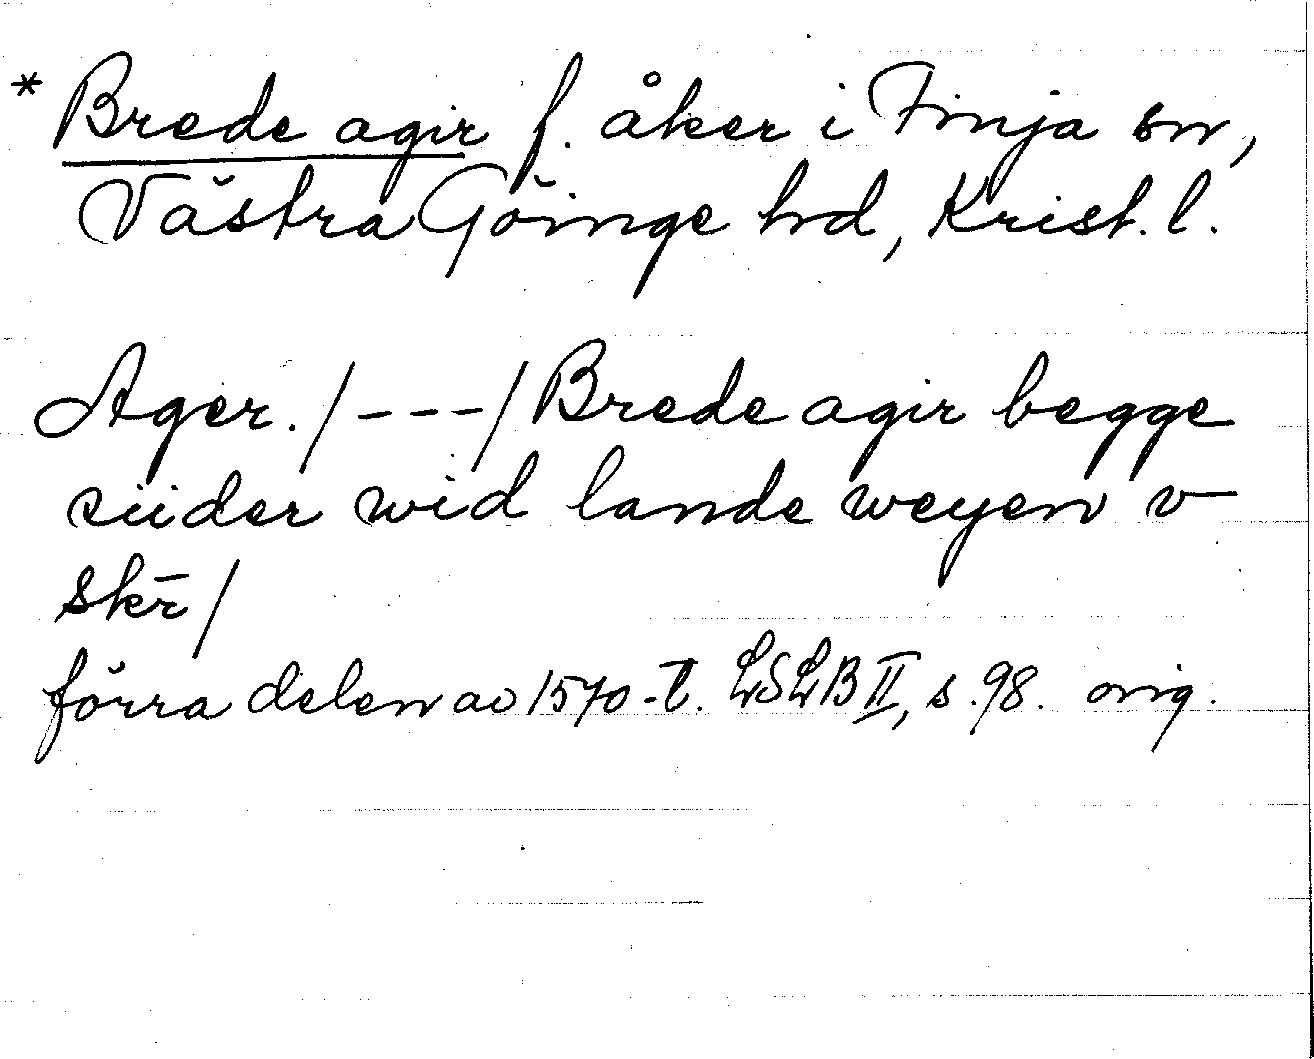 * Brede agir f. åker i Finja sn,
Västra Göinge hd, Krist. l.
Ager. /---/ Brede agir begge
siider wid lande weyen v
skr̄/
förra delen av 1570-t. LSLB II, s. 98. orig.